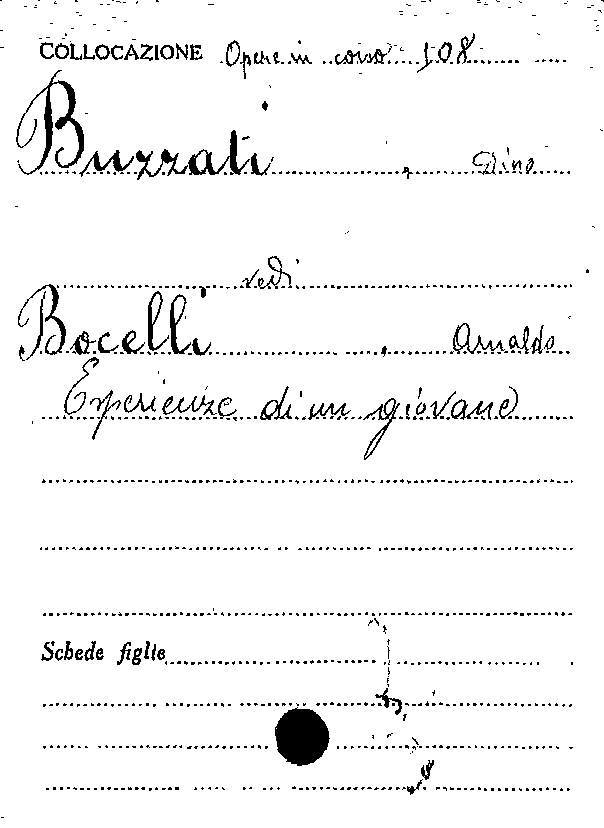 COLLOCAZIONE Opere in corso 108
Buzzati , Dino
vedi
Bocelli , Arnaldo
Esperienze di un giovane
Schede figlie